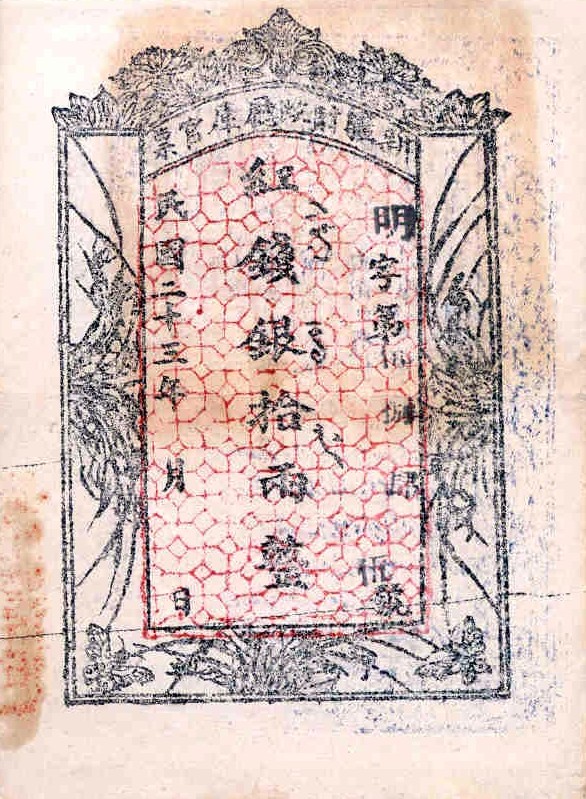 新疆財政廳庫官票
明字第
號
紅錢銀拾兩整
民國二十三年 月 日